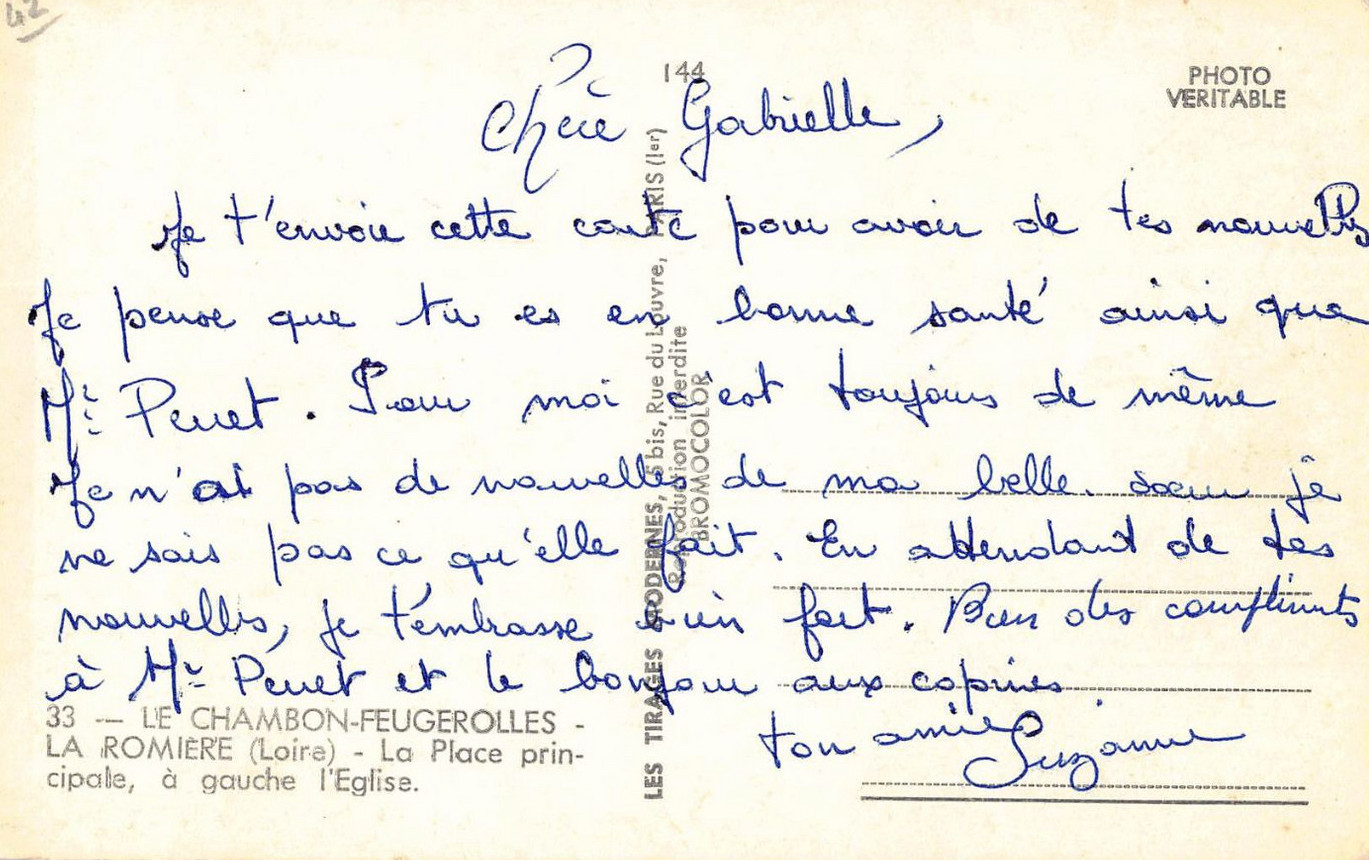 42
144
PHOTO
VERITABLE
Chère Gabrielle,
Je t'envoie cette carte pour avoir de tes nouvelles
Je pense que tu es en bonne santé ainsi que
Mr Perret. Pour moi c'est toujours de même
Je n'ai pas de nouvelles de ma belle-soeur je
ne sais pas ce qu'elle fait. En attendant de tes
nouvelles, je t'embrasse bien fort. Bien des compliments
à Mr Perret et le bonjour aux copines
ton amie Suzanne
33 — LE CHAMBON-FEUGEROLLES -
LA ROMIERE (Loire) - La Place prin-
cipale, à gauche l'Eglise.
LES TIRAGES MODERNES, 5 bis, Rue du Louvre, PARIS (Ier)
Reproduction interdite
BROMOCOLOR